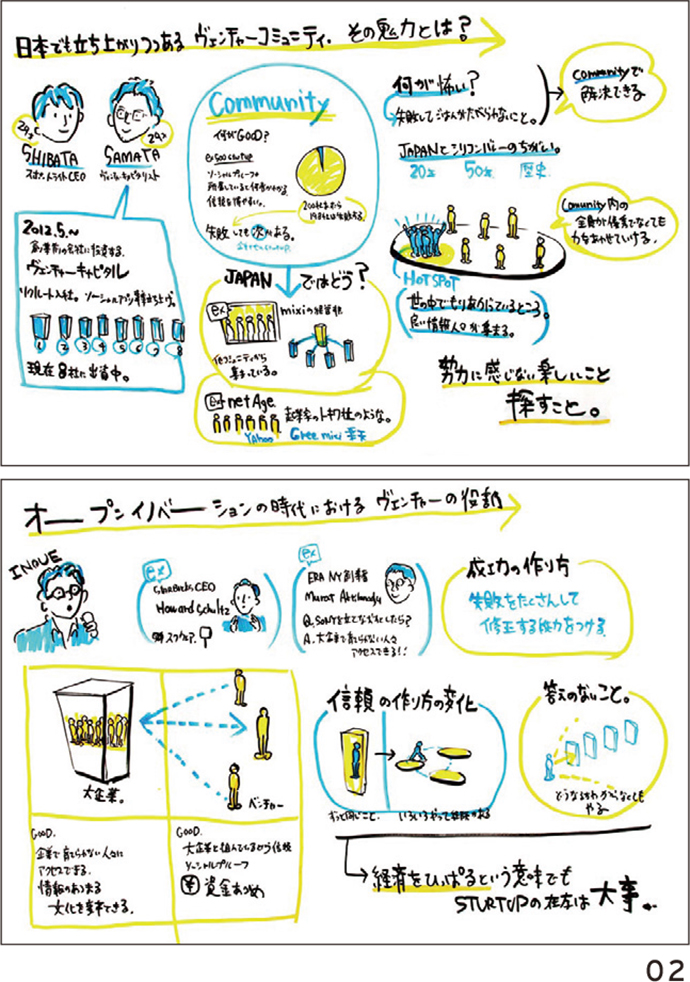 日本でも立ち上がりつつある ヴェンチャーコミュニティ. その魅力とは?
29才
SHIBATA
スポットライトCEO
SAMATA
ヴェンチャーキャピタリスト
2012.5.~
創業前の会社に投資する.
ヴェンチャーキャピタル
リクルート入社。ソーシャルアプリ事業立ち上げ。
1 2 3 4 5 6 7 8
現在8社に出資中。
Community
何がGOOD?
ex 500 startup
ソーシャルプルーフ
失敗しても次がある。
JAPAN ではどう?
ex
mixiの経営者
他コミュニティから
集まっている。
ex netAge
起業家のトキワ荘のような。
Yahoo Gree mixi 楽天
何が怖い?
失敗してごはんがたべられないこと。
Communityで
解決できる
JAPANとシリコンバレーのちがい。
20年 50年 歴史
Comunity内の
全員が優秀でなくても
力をあわせていける.
HOTSPOT
世の中でもりあがっているところ。
良い情報、人が集まる。
努力に感じない楽しいこと
探すこと。
オープンイノベーションの時代における ヴェンチャーの役割
INOUE
ex
Starbucks CEO
Howard Schultz
ex
ERA NY創設者
A. 大企業で雇えない人々
アクセスできる!!
成功の作り方
失敗をたくさんして
修正する能力をつける.
大企業。
ベンチャー
GOOD.
企業で雇えない人々に
アクセスできる.
GOOD.
大企業と組んでいるから信頼
ソーシャルプルーフ
¥ 資金あつめ
信頼の作り方の変化
ずっと同じこと.
いろいろやって経験がある
答えのないこと。
どうなるかわからなくても
やる
経済をひっぱるという意味でも
STURTUPの存在は大事。
02